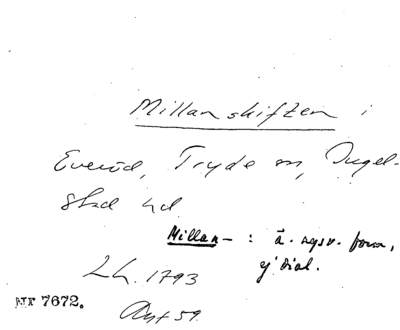 Millanskiften i
Everöd, Tryde sn, Ingel-
stad hd
Millan- : ä. nysv. form,
ej dial.
LH. 1793
NF 7672.
Avf 59.